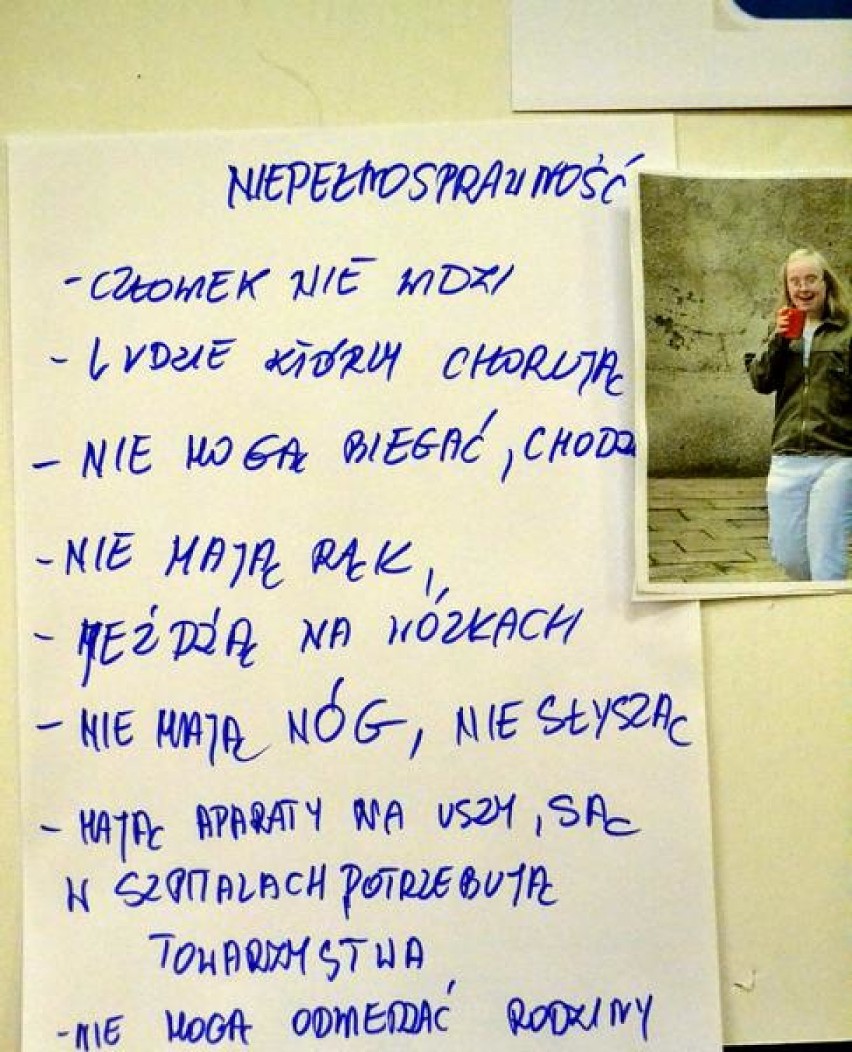 NIEPEŁNOSPRAWNOŚĆ
- CZŁOWIEK NIE WIDZI
- LUDZIE KTÓRZY CHORUJĄ
- NIE MOGĄ BIEGAĆ, CHODZ
- NIE MAJĄ RĄK,
- JEŹDŻĄ NA WÓZKACH
- NIE MAJĄ NÓG, NIE SŁYSZĄ
- MAJĄ APARATY NA USZY, SĄ
W SZPITALACH POTRZEBUJĄ
TOWARZYSTWA
- NIE MOGĄ ODWIEDZAĆ RODZINY